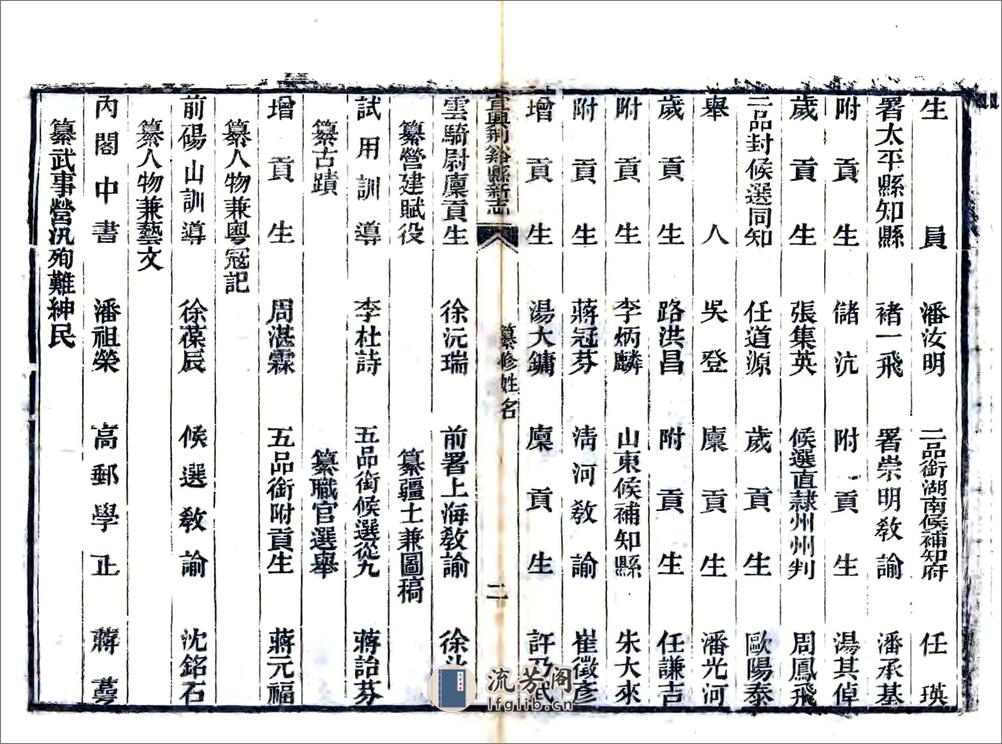 生員 潘汝明 二品銜湖南候補知府 任瑛
署太平縣知縣 褚一飛 署崇明教諭 潘承基
附貢生 儲沆 附貢生 湯其倬
歲貢生 張集英 候選直隸州州判 周鳳飛
二品封候選同知 任道源 歲貢生 歐陽泰
舉人 吳登 廩貢生 潘光河
歲貢生 路洪昌 附貢生 任謙吉
附貢生 李炳麟 山東候補知縣 朱大來
附貢生 蔣冠芬 清河教諭 崔徵彥
增貢生 湯大鏞 廩貢生 許乃
宜興荊谿縣新志 纂修姓名 二
雲騎尉廩貢生 徐沅瑞 前署上海教諭 徐
纂營建賦役 纂疆土兼圖稿
試用訓導 李杜詩 五品銜候選從九 蔣詒芬
纂古蹟 纂職官選舉
增貢生 周湛霖 五品銜附貢生 蔣元福
纂人物兼粵寇記
前碭山訓導 徐葆辰 候選教諭 沈銘石
纂人物兼藝文
內閣中書 潘祖榮 高郵學正 蔣萼
纂武事營汛殉難紳民
流芳阁
lfglib.cn